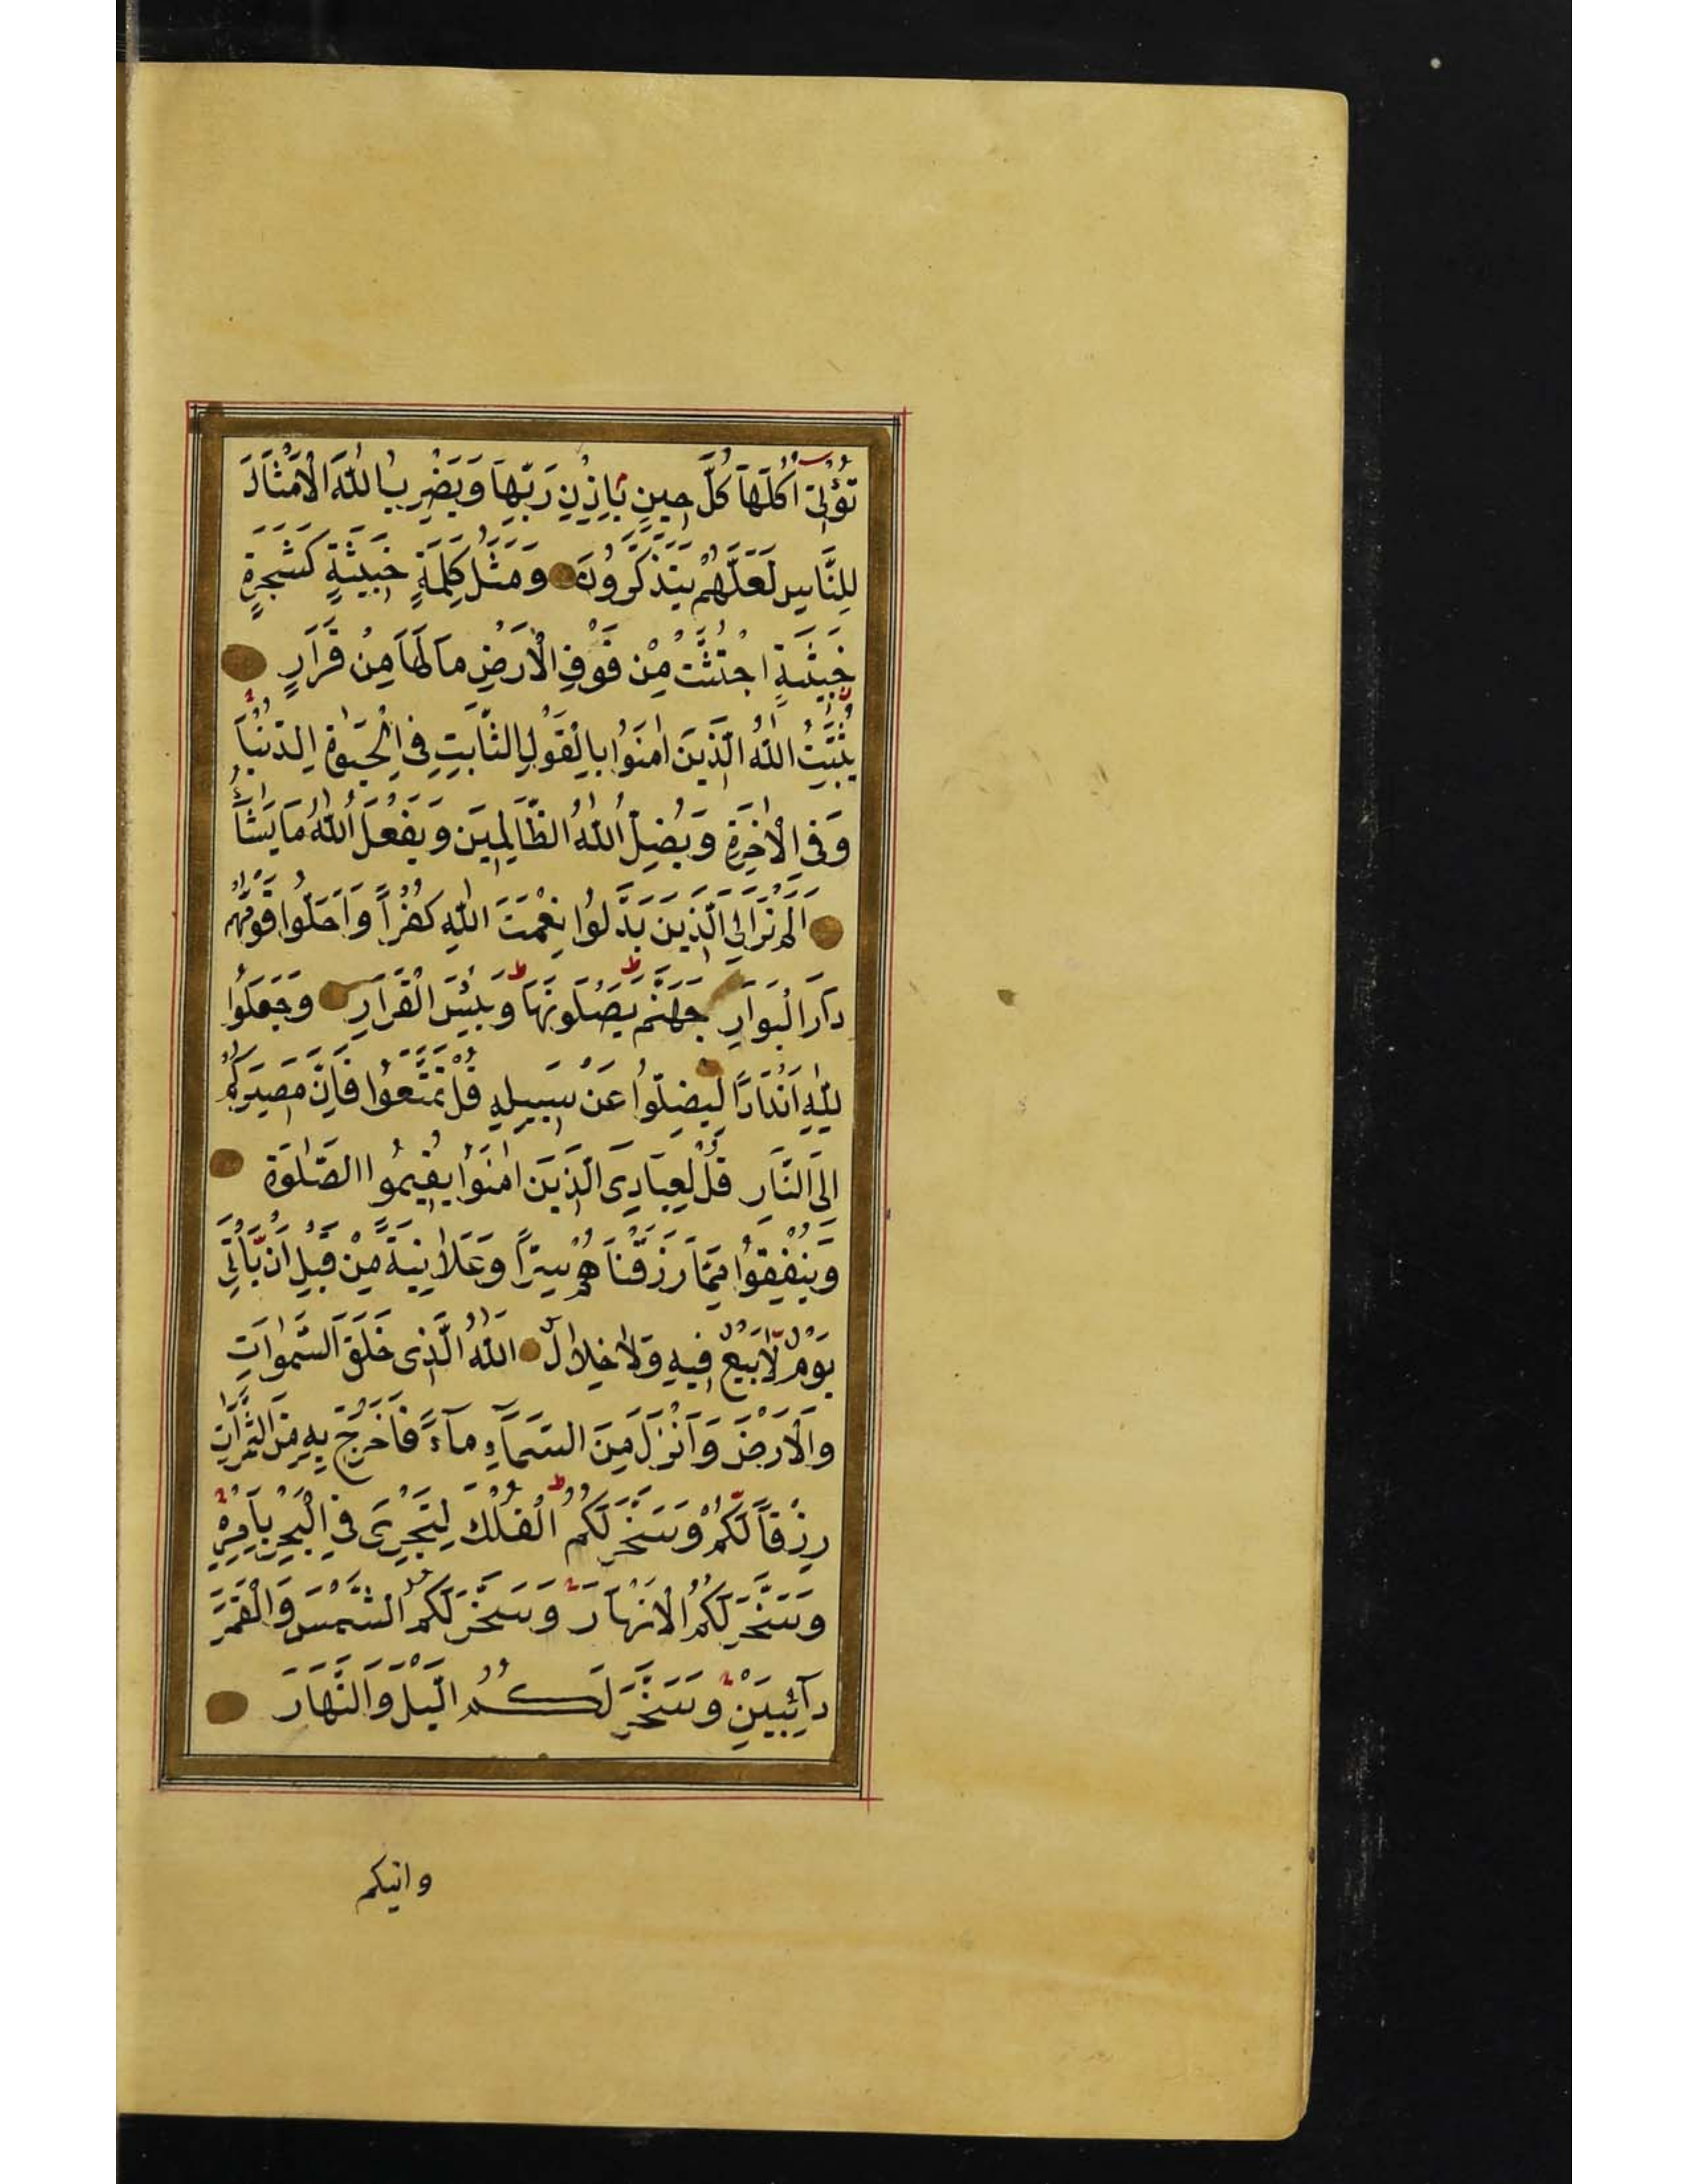 تُؤْتِىٓ اُكُلَهَا كُلَّ حِينٍ بِاِذْنِ رَبِّهَا وَيَضْرِبُ اللّٰهُ الْاَمْثَالَ
لِلنَّاسِ لَعَلَّهُمْ يَتَذَكَّرُونَ وَمَثَلُ كَلِمَةٍ خَبِيثَةٍ كَشَجَرَةٍ
خَبِيثَةٍ اجْتُثَّتْ مِنْ فَوْقِ الْاَرْضِ مَا لَهَا مِنْ قَرَارٍ
يُثَبِّتُ اللّٰهُ الَّذِينَ اٰمَنُوا بِالْقَوْلِ الثَّابِتِ فِى الْحَيٰوةِ الدُّنْيَا
وَفِى الْاٰخِرَةِ وَيُضِلُّ اللّٰهُ الظَّالِمِينَ وَيَفْعَلُ اللّٰهُ مَا يَشَآءُ
اَلَمْ تَرَ اِلَى الَّذِينَ بَدَّلُوا نِعْمَتَ اللّٰهِ كُفْرًا وَاَحَلُّوا قَوْمَهُمْ
دَارَ الْبَوَارِ جَهَنَّمَ يَصْلَوْنَهَا وَبِئْسَ الْقَرَارِ وَجَعَلُوا
لِلّٰهِ اَنْدَادًا لِيُضِلُّوا عَنْ سَبِيلِهِ قُلْ تَمَتَّعُوا فَاِنَّ مَصِيرَكُمْ
اِلَى النَّارِ قُلْ لِعِبَادِىَ الَّذِينَ اٰمَنُوا يُقِيمُوا الصَّلٰوةَ
وَيُنْفِقُوا مِمَّا رَزَقْنَاهُمْ سِرًّا وَعَلَانِيَةً مِنْ قَبْلِ اَنْ يَأْتِىَ
يَوْمٌ لَا بَيْعٌ فِيهِ وَلَا خِلَالٌ اَللّٰهُ الَّذِى خَلَقَ السَّمٰوَاتِ
وَالْاَرْضَ وَاَنْزَلَ مِنَ السَّمَآءِ مَآءً فَاَخْرَجَ بِهِ مِنَ الثَّمَرَاتِ
رِزْقًا لَكُمْ وَسَخَّرَ لَكُمُ الْفُلْكَ لِتَجْرِىَ فِى الْبَحْرِ بِاَمْرِهِ
وَسَخَّرَ لَكُمُ الْاَنْهَارَ وَسَخَّرَ لَكُمُ الشَّمْسَ وَالْقَمَرَ
دَآئِبَيْنِ وَسَخَّرَ لَكُمُ الَّيْلَ وَالنَّهَارَ
واتيكم